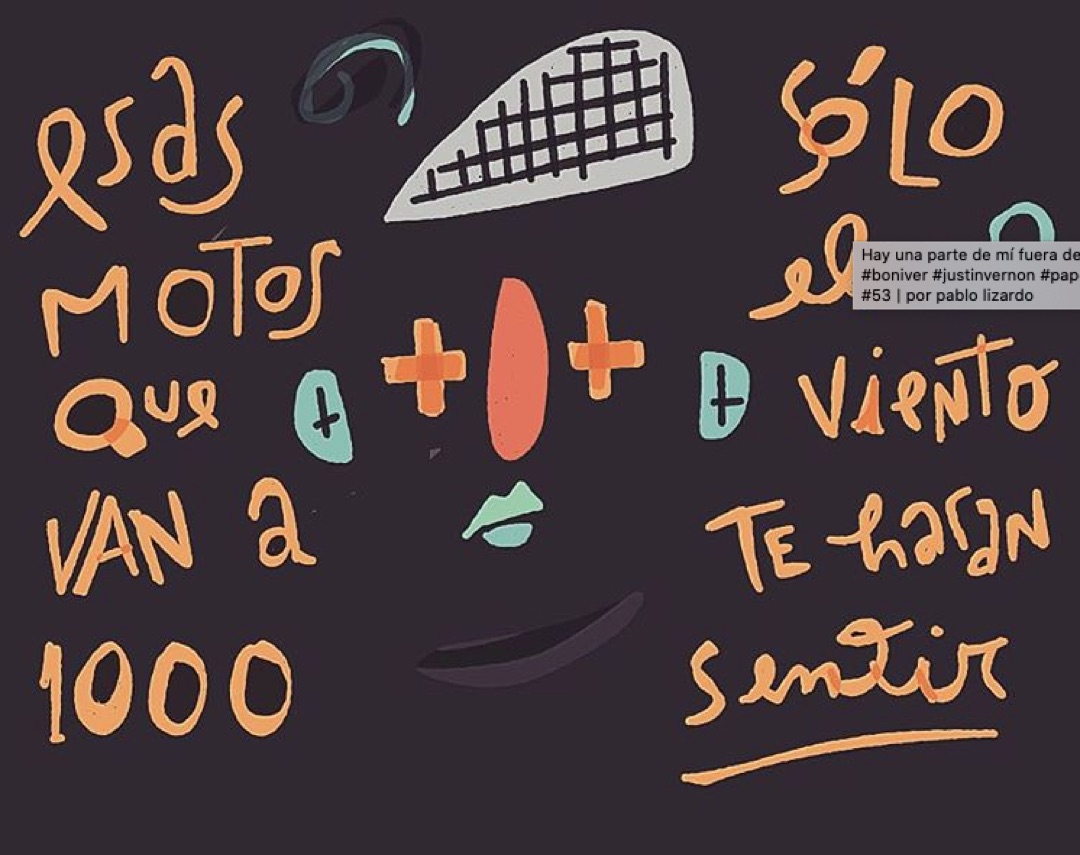 esas
MOTOS
Que
VAN a
1000
SÓLO
el
viento
TE harán
sentir
Hay una parte de mí fuera de
#boniver #justinvernon #pap
#53 | por pablo lizardo